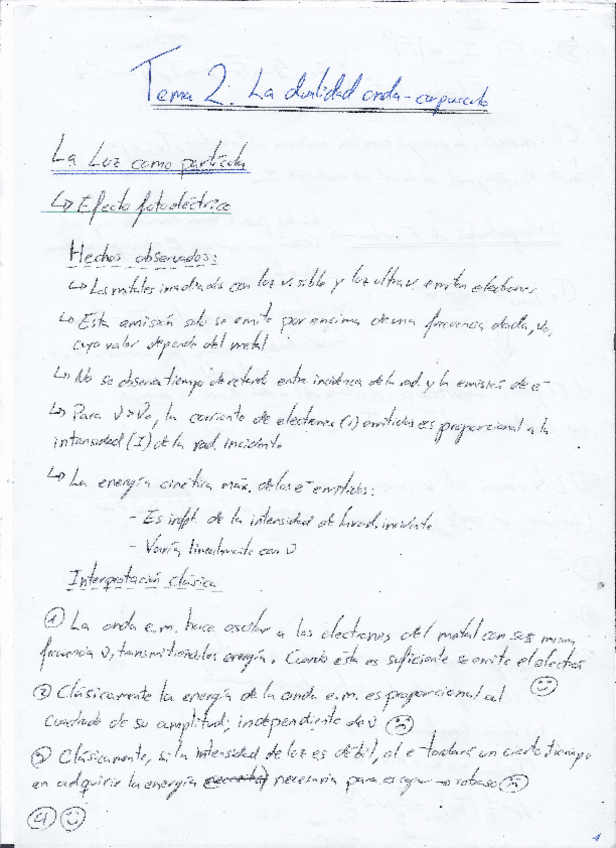 Tema 2: La dualidad onda-corpúsculo
La Luz como partícula
↳ Efecto fotoeléctrico
Hechos observados:
↳ Los metales irradiados con luz visible y luz ultrav. emiten electrones
↳ Esta emisión solo se emite por encima de una frecuencia dada, ν₀,
cuyo valor depende del metal
↳ No se observa tiempo de retardo entre incidencia de la rad. y la emisión de e⁻
↳ Para ν>ν₀, la corriente de electrones (i) emitidos es proporcional a la
intensidad (I) de la rad. incidente
↳ La energía cinética máx. de los e⁻ emitidos:
- Es indpt. de la intensidad de la rad. incidente
- Varía linealmente con ν
Interpretación clásica
① La onda e.m. hace oscilar a los electrones del metal con su misma
frecuencia ν, transmitiéndoles energía. Cuando ésta es suficiente se emite el electrón
☺
② Clásicamente la energía de la onda e.m. es proporcional al
cuadrado de su amplitud, independiente de ν ☹
③ Clásicamente, si la intensidad de luz es débil, el e⁻ tardará un cierto tiempo
en adquirir la energía necesaria para escapar → retraso ☹
④ ☺
1